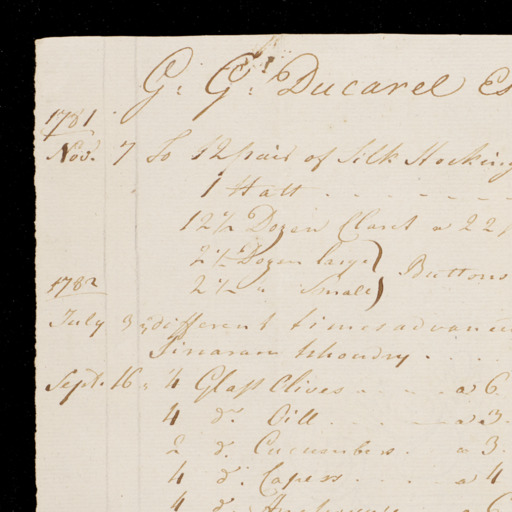 G: G: Ducarel Es
1781
Nov. 7 To 12 pair of Silk Stocking
1 Hatt
12½ Dozen Claret a 22
2½ Dozen large
Buttons
2½ " Small
1782
July 3 " different times advance
Sinaran
Sept. 16 " 4 Glass Olives a 6
4 do. Oill a 3
2 do. Cucumbers a 3
4 do. Capers a 4
4 do. a 6